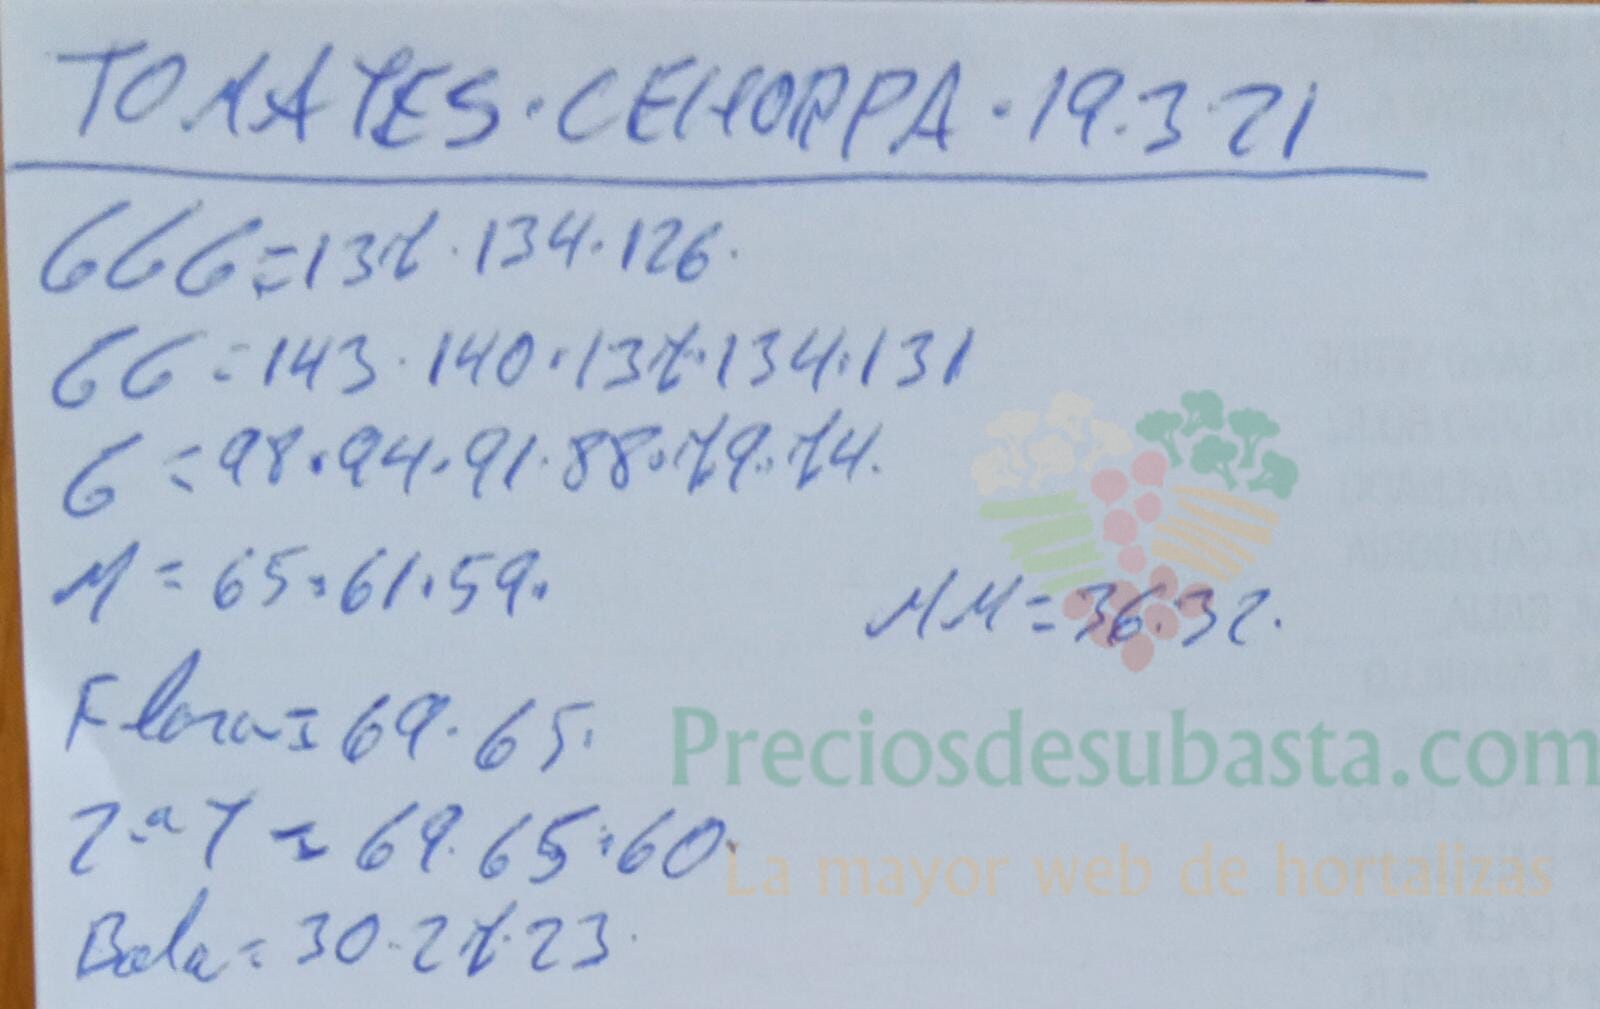 TOMATES·CEHORPA·19.3·21
GGG=137·134·126·
GG=143·140·137·134·131
G=98·94·91·88·79·74.
M=65·61·59.
MM=36·32.
Flora=69·65.
Preciosdesubasta.com
2·ª T=69·65·60·
La mayor web de hortalizas
Bola=30·27·23·